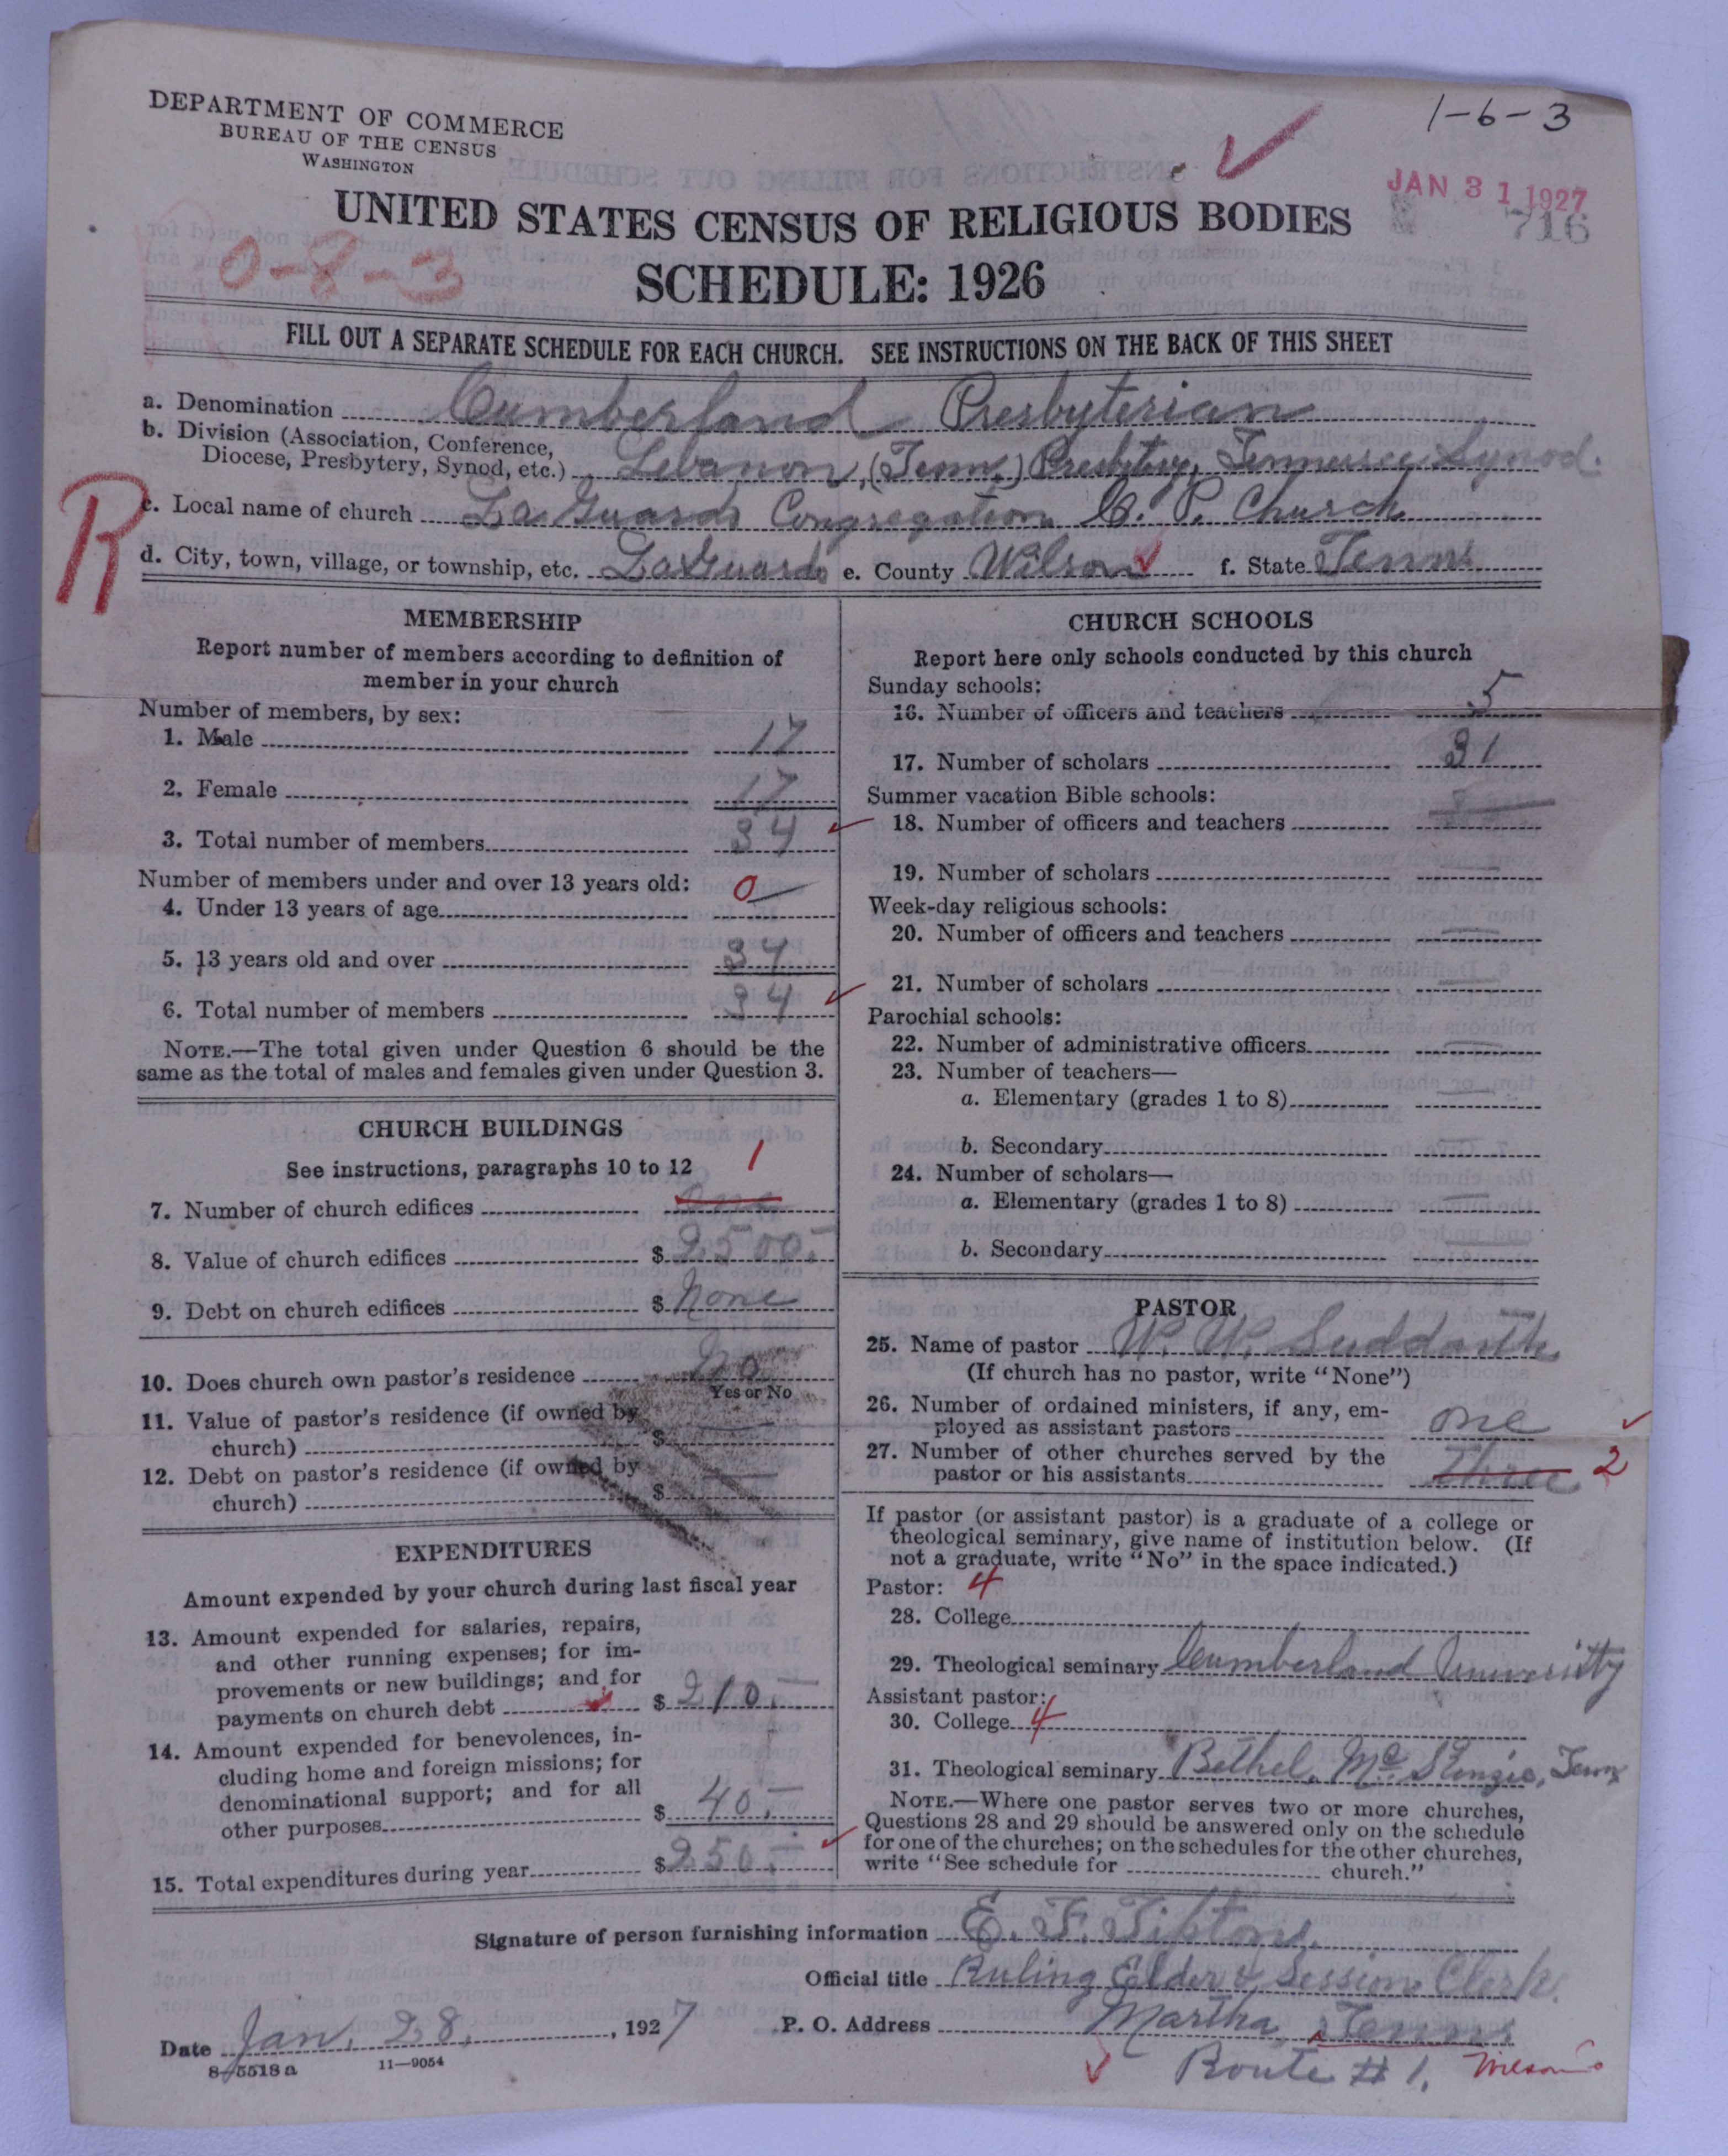 DEPARTMENT OF COMMERCE
BUREAU OF THE CENSUS
WASHINGTON
1-6-3
JAN 31 1927
716
UNITED STATES CENSUS OF RELIGIOUS BODIES
0-8-3
SCHEDULE: 1926
FILL OUT A SEPARATE SCHEDULE FOR EACH CHURCH. SEE INSTRUCTIONS ON THE BACK OF THIS SHEET
a. Denomination Cumberland Presbyterian
b. Division (Association, Conference,
Diocese, Presbytery, Synod, etc.) Lebanon, (Tenn.) Presbytery, Tennessee Synod.
R
c. Local name of church La Guardo Congregation C. P. Church
d. City, town, village, or township, etc. LaGuardo e. County Wilson f. State Tenn.
MEMBERSHIP
Report number of members according to definition of
member in your church
Number of members, by sex:
1. Male 17
2. Female 17
3. Total number of members 34
Number of members under and over 13 years old: 0
4. Under 13 years of age
5. 13 years old and over 34
6. Total number of members 34
NOTE.—The total given under Question 6 should be the
same as the total of males and females given under Question 3.
CHURCH BUILDINGS
See instructions, paragraphs 10 to 12 1
7. Number of church edifices one
8. Value of church edifices $ 2500.—
9. Debt on church edifices $ None
10. Does church own pastor's residence No
Yes or No
11. Value of pastor's residence (if owned by
church) $
12. Debt on pastor's residence (if owned by
church) $
EXPENDITURES
Amount expended by your church during last fiscal year
13. Amount expended for salaries, repairs,
and other running expenses; for im-
provements or new buildings; and for
payments on church debt $ 210.—
14. Amount expended for benevolences, in-
cluding home and foreign missions; for
denominational support; and for all
other purposes $ 40.—
15. Total expenditures during year $ 250.—
CHURCH SCHOOLS
Report here only schools conducted by this church
Sunday schools:
16. Number of officers and teachers 5
17. Number of scholars 31
Summer vacation Bible schools:
18. Number of officers and teachers
19. Number of scholars —
Week-day religious schools:
20. Number of officers and teachers —
21. Number of scholars —
Parochial schools:
22. Number of administrative officers —
23. Number of teachers—
a. Elementary (grades 1 to 8) —
b. Secondary
24. Number of scholars—
a. Elementary (grades 1 to 8) —
b. Secondary —
PASTOR
25. Name of pastor W. W. Suddarth
(If church has no pastor, write "None")
26. Number of ordained ministers, if any, em-
ployed as assistant pastors one
27. Number of other churches served by the
pastor or his assistants three 2
If pastor (or assistant pastor) is a graduate of a college or
theological seminary, give name of institution below. (If
not a graduate, write "No" in the space indicated.)
Pastor: 4
28. College
29. Theological seminary Cumberland University
Assistant pastor:
30. College 4
31. Theological seminary Bethel, McKenzie, Tenn
NOTE.—Where one pastor serves two or more churches,
Questions 28 and 29 should be answered only on the schedule
for one of the churches; on the schedules for the other churches,
write "See schedule for church."
Signature of person furnishing information E. F. Tipton.
Official title Ruling Elder & Session Clerk.
Date Jan. 28, 1927 P. O. Address Martha, Tenn.
8-5518 a 11-9054
Route # 1. Wilson